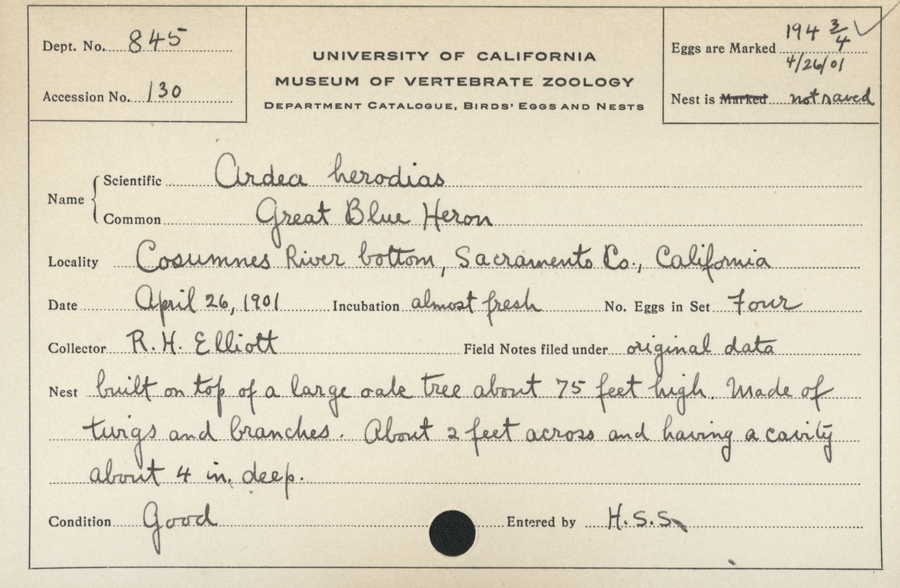 Dept. No. 845
Accession No. 130
UNIVERSITY OF CALIFORNIA
MUSEUM OF VERTEBRATE ZOOLOGY
DEPARTMENT CATALOGUE, BIRDS' EGGS AND NESTS
Eggs are Marked 194 3/4
4/26/01
Nest is Marked not saved
Name
Scientific Ardea herodias
Common Great Blue Heron
Locality Cosumnes River bottom, Sacramento Co., California
Date April 26, 1901 Incubation almost fresh No. Eggs in Set Four
Collector R. H. Elliott Field Notes filed under original data
Nest built on top of a large oak tree about 75 feet high. Made of
twigs and branches. About 2 feet across and having a cavity
about 4 in. deep.
Condition Good Entered by H.S.S.